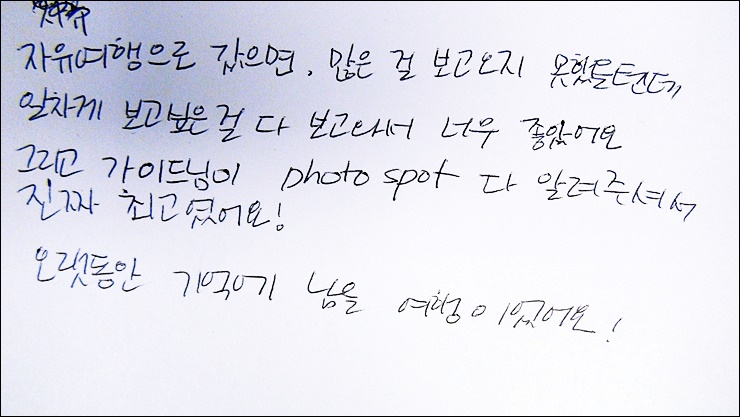 자유여행으로 갔으면, 많은 걸 보고오지 못했을텐데
알차게 보고싶은걸 다 보고와서 너무 좋았어요
그리고 가이드님이 photo spot 다 알려주셔서
진짜 최고였어요!
오랫동안 기억에 남을 여행이었어요!